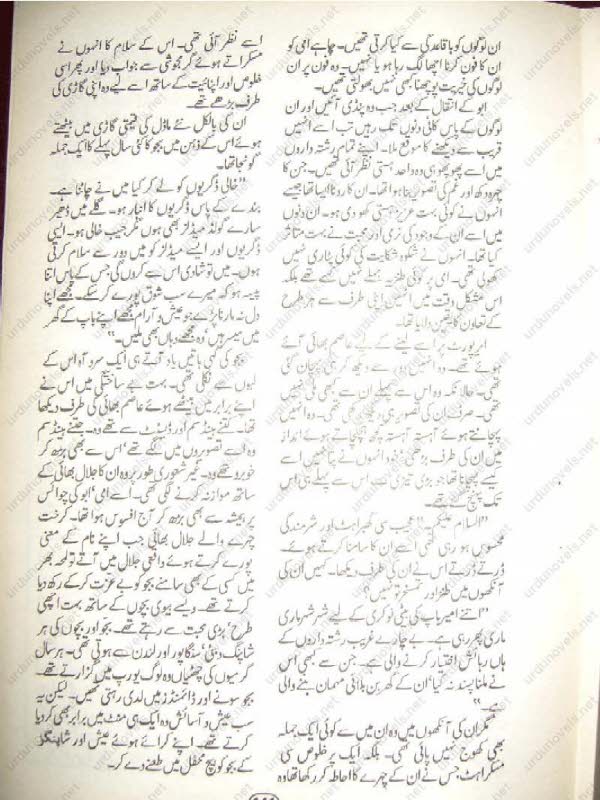 ان لوگوں کو باقاعدگی سے کیا کرتی تھیں۔ چاہے امی کو
ان کا فون کرنا اچھا لگ رہا ہو یا نہیں۔ وہ فون پر ان
لوگوں کی خیریت پوچھنا بھی نہیں بھولتی تھیں۔
ابو کے انتقال کے بعد جب وہ پنڈی آئیں اور ان
لوگوں کے پاس کافی دنوں تک رہیں تب اسے انہیں
قریب سے دیکھنے کا موقع ملا۔ اپنے تمام رشتہ داروں
میں اسے پھوپھو ہی وہ واحد ہستی نظر آئی تھیں۔ جن کا
چہرہ دکھ اور غم کی تصویر بنا ہوا تھا۔ ان کا رونا ایسا تھا جیسے
انہوں نے کوئی بہت عزیز ہستی کھو دی ہو۔ ان دنوں
میں اسے ان کے وجود کی نرمی اور محبت نے بہت متاثر
کیا تھا۔ انہوں نے شکوہ شکایت کی کوئی پٹاری نہیں
کھولی تھی۔ امی پر کوئی طنزیہ جملے نہیں کسے تھے بلکہ
اس مشکل وقت میں انہیں اپنی طرف سے ہر طرح
کے تعاون کا یقین دلایا تھا۔
ائرپورٹ پر اسے لینے کے لیے عاصم بھائی آئے
ہوئے تھے۔ وہ انہیں دور سے دیکھ کر ہی پہچان گئی
تھی۔ حالانکہ وہ اس سے پہلے ان سے کبھی ملی نہیں
تھی۔ صرف ان کی تصویریں ہی دیکھی تھیں۔ وہ انہیں
پہچانتے ہوئے آہستہ آہستہ کچھ ہچکچاتے ہوئے انداز
میں ان کی طرف بڑھی تھی انہوں نے پتا نہیں اسے
کیسے پہچانا تھا جو بڑی تیزی سے اس سے پہلے ہی اس
تک پہنچ گئے تھے۔
"السلام علیکم۔" عجیب سی گھبراہٹ اور شرمندگی
محسوس ہو رہی تھی اسے ان کا سامنا کرتے ہوئے۔
ڈرتے ڈرتے اس نے ان کی طرف دیکھا۔ کہیں ان کی
آنکھوں میں طنز اور تمسخر تو نہیں؟
"اتنے امیر باپ کی بیٹی نوکری کے لیے شہر شہر ماری
ماری پھر رہی ہے۔ بے چارے غریب رشتہ داروں کے
ہاں رہائش اختیار کرنے والی ہے۔ جن سے کبھی اس
نے ملنا پسند نہ کیا' ان کے گھر بن بلائی مہمان بننے والی
ہے۔"
مگر ان کی آنکھوں میں وہ ان میں سے کوئی ایک جملہ
بھی کھوج نہیں پائی تھی۔ بلکہ ایک پر خلوص سی
مسکراہٹ جس نے ان کے چہرے کا احاطہ کر رکھا تھا وہ
اسے نظر آئی تھی۔ اس کے سلام کا انہوں نے
مسکراتے ہوئے گرمجوشی سے جواب دیا اور پھر اسی
خلوص اور اپنائیت کے ساتھ اسے لیے وہ اپنی گاڑی کی
طرف بڑھے تھے۔
ان کی بالکل نئے ماڈل کی قیمتی گاڑی میں بیٹھتے
ہوئے اس کے ذہن میں بجو کا کئی سال پہلے کا ایک جملہ
گونجا تھا۔
"خالی ڈگریوں کو لے کر کیا میں نے چاٹنا ہے۔
بندے کے پاس ڈگریوں کا انبار ہو۔ گلے میں ڈھیر
سارے گولڈ میڈلز بھی ہوں مگر جیب خالی ہو۔ ایسی
ڈگریوں اور ایسے میڈلز کو میں دور سے سلام کرتی
ہوں۔ میں تو شادی اس سے کروں گی جس کے پاس اتنا
پیسہ ہو کہ میرے سب شوق پورے کر سکے۔ مجھے اپنا
دل نہ مارنا پڑے جو عیش و آرام مجھے اپنے باپ کے گھر
میں میسر ہیں' وہ مجھے وہاں بھی ملیں۔"
بجو کی کہی باتیں یاد آتے ہی ایک سرد آہ اس کے
لبوں سے نکلی تھی۔ بہت بے ساختگی میں اس نے
اپنے برابر میں بیٹھے ہوئے عاصم بھائی کی طرف دیکھا
تھا۔ کتنے ہینڈسم اور ڈیسنٹ سے تھے وہ۔ جتنے ہینڈسم
وہ اسے تصویروں میں لگتے تھے' اس سے بھی بڑھ کر
خوبرو تھے وہ۔ غیر شعوری طور پر وہ ان کا جلال بھائی کے
ساتھ موازنہ کرنے لگی تھی۔ اسے امی' ابو کی چوائس
پر ہمیشہ سے بھی بڑھ کر آج افسوس ہوا تھا۔ کرخت
چہرے والے جلال بھائی جب اپنے نام کے معنی
پورے کرتے ہوئے واقعی جلال میں آتے تو لمحہ بھر
میں کسی کے بھی سامنے بجو کو بے عزت کر کے رکھ دیا
کرتے تھے۔ ویسے بیوی بچوں کے ساتھ بہت اچھی
طرح' بڑی محبت سے رہتے تھے۔ بجو اور بچوں کی ہر
شاپنگ دبئی' سنگاپور اور لندن سے ہوتی تھی۔ ہر سال
گرمیوں کی چھٹیاں وہ لوگ یورپ میں گزارتے تھے۔
بجو سونے اور ڈائمنڈز میں لدی رہتی تھیں۔ لیکن یہ
سب عیش و آسائش وہ ایک ہی منٹ میں برابر بھی کر دیا
کرتے تھے۔ اپنے کرائے ہوئے عیش اور شاپنگز
کے بجو کو بیچ محفل میں طعنے دے کر۔
urdunovels.net